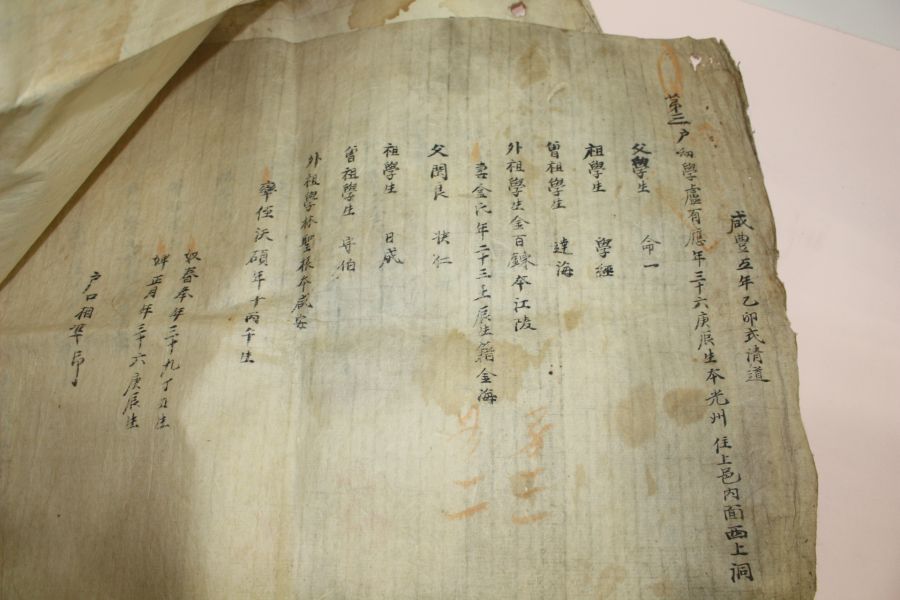 咸豊五年乙卯式清道
第三戶幼學盧有應年三十六庚辰生本光州 住上邑內面西上洞
父學生 命一
祖學生 學經
曾祖學生 達海
外祖學生金百鍊本江陵
妻金氏年二十三 辰生籍金海
父閑良 仁
祖學生 日成
曾祖學生 守伯
外祖學 林聖振本咸安
率侄 碩年十 丙午生
奴春奉年三十九丁丑生
婢正月年三十六庚辰生
戶口相準印